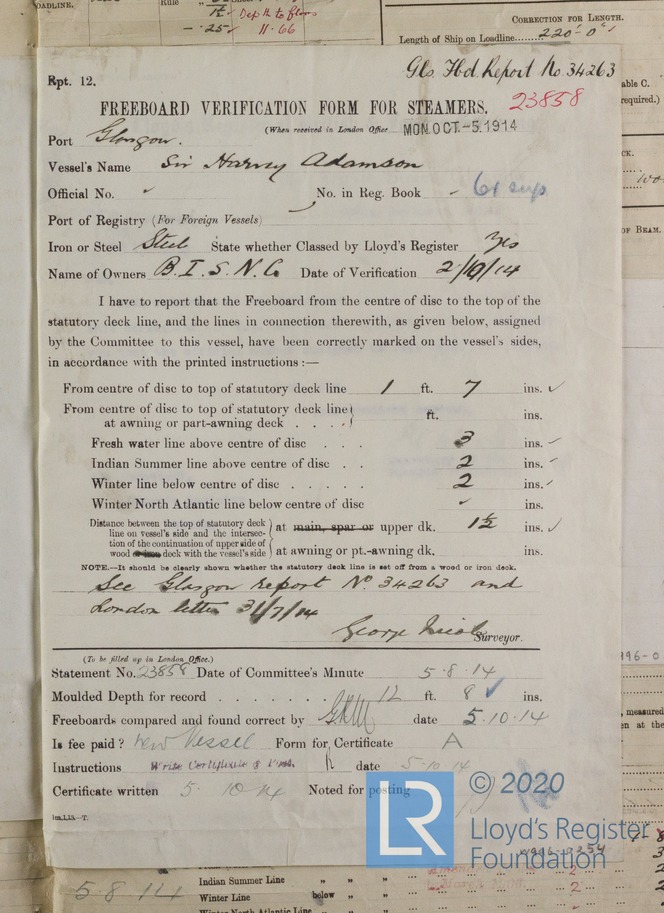 DADLINE.
Rule
1½ Depth to floors
-.25 11.66
CORRECTION FOR LENGTH.
Length of Ship on Loadline......220'-0"
Rpt. 12.
Gls. Fbd. Report No. 34263
FREEBOARD VERIFICATION FORM FOR STEAMERS. 23858
(When received in London Office MON. OCT -5. 1914
Port Glasgow.
Vessel's Name Sir Harvey Adamson
Official No. No. in Reg. Book - 61 sup
Port of Registry (For Foreign Vessels)
Iron or Steel Steel State whether Classed by Lloyd's Register Yes
Name of Owners B. I. S. N. Co Date of Verification 2/10/14
I have to report that the Freeboard from the centre of disc to the top of the
statutory deck line, and the lines in connection therewith, as given below, assigned
by the Committee to this vessel, have been correctly marked on the vessel's sides,
in accordance with the printed instructions :—
From centre of disc to top of statutory deck line 1 ft. 7 ins. ✓
From centre of disc to top of statutory deck line
at awning or part-awning deck . . . . ft. ins.
Fresh water line above centre of disc . . . 3 ins.
Indian Summer line above centre of disc . . 2 ins.
Winter line below centre of disc . . . . . 2 ins.
Winter North Atlantic line below centre of disc ins.
Distance between the top of statutory deck
line on vessel's side and the intersec-
tion of the continuation of upper side of
wood or iron deck with the vessel's side
at main, spar or upper dk. 1½ ins. ✓
at awning or pt.-awning dk. ins.
NOTE.—It should be clearly shown whether the statutory deck line is set off from a wood or iron deck.
See Glasgow report No. 34263 and
London letter 31/7/14
George Nicol Surveyor.
(To be filled up in London Office.)
Statement No. 23858 Date of Committee's Minute 5.8.14
Moulded Depth for record . . . . . . . 12 ft. 8 ins.
Freeboards compared and found correct by date 5.10.14
Is fee paid? New Vessel Form for Certificate A
Instructions Write Certificate & Post. date 5-10-14
Certificate written 5. 10 14 Noted for posting
LR
© 2020
Lloyd's Register
Foundation
W996-0254
5.8.14
Indian Summer Line " " "
Winter Line below " "
Winter North Atlantic Line
able C.
required.)
CK.
OF BEAM.
996-0
, measured
en at the